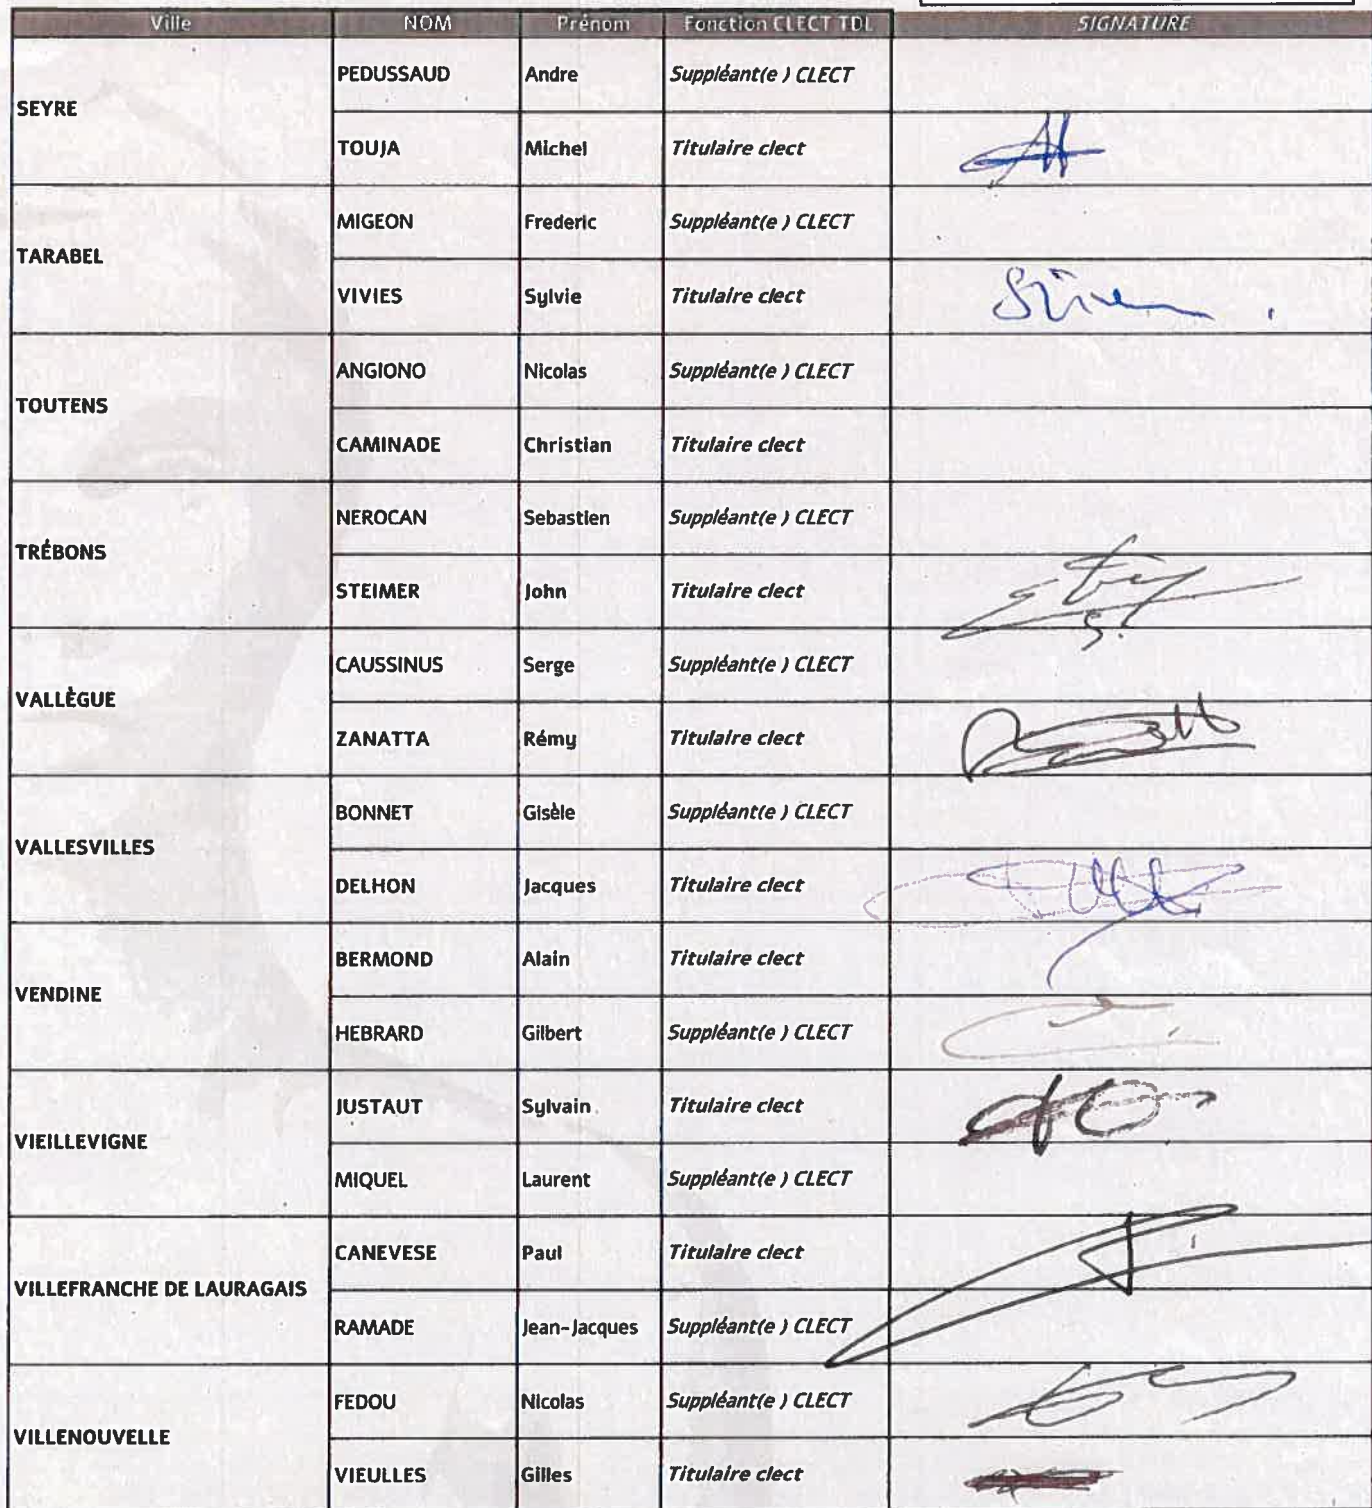 Ville NOM Prénom Fonction CLECT TDL SIGNATURE
SEYRE
PEDUSSAUD Andre Suppléant(e ) CLECT
TOUJA Michel Titulaire clect
TARABEL
MIGEON Frederic Suppléant(e ) CLECT
VIVIES Sylvie Titulaire clect
TOUTENS
ANGIONO Nicolas Suppléant(e ) CLECT
CAMINADE Christian Titulaire clect
TRÉBONS
NEROCAN Sebastien Suppléant(e ) CLECT
STEIMER John Titulaire clect
VALLÈGUE
CAUSSINUS Serge Suppléant(e ) CLECT
ZANATTA Rémy Titulaire clect
VALLESVILLES
BONNET Gisèle Suppléant(e ) CLECT
DELHON Jacques Titulaire clect
VENDINE
BERMOND Alain Titulaire clect
HEBRARD Gilbert Suppléant(e ) CLECT
VIEILLEVIGNE
JUSTAUT Sylvain Titulaire clect
MIQUEL Laurent Suppléant(e ) CLECT
VILLEFRANCHE DE LAURAGAIS
CANEVESE Paul Titulaire clect
RAMADE Jean-Jacques Suppléant(e ) CLECT
VILLENOUVELLE
FEDOU Nicolas Suppléant(e ) CLECT
VIEULLES Gilles Titulaire clect